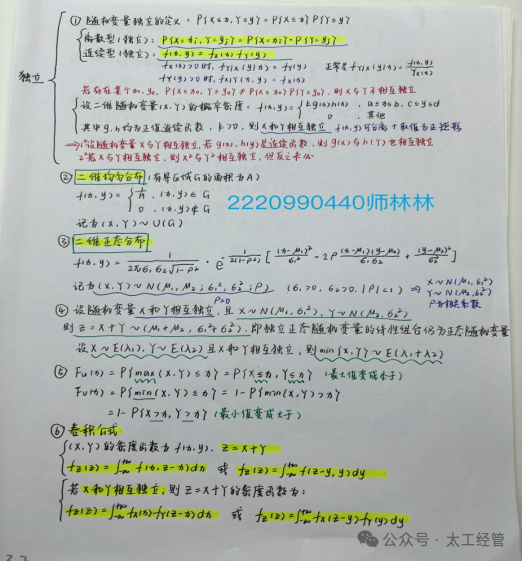 独立
① 随机变量独立的定义：P{X≤x, Y≤y} = P{X≤x} P{Y≤y}
离散型（独立）：P{X=xi, Y=yj} = P{X=xi}·P{Y=yj}
连续型（独立）：f(x,y) = fX(x) fY(y)
fX(x)>0时, fY|X(y|x) = fY(y) 正常是 fY|X(y|x) = f(x,y)/fX(x)
fY(y)>0时, fX|Y(x|y) = fX(x)
若存在某个x0, y0, P{X≤x0, Y≤y0} ≠ P{X≤x0} P{Y≤y0}, 则X与Y不相互独立
设二维随机变量(X,Y)的概率密度：f(x,y) = { kg(x)h(y), a≤x≤b, c≤y≤d
0, 其他
其中g,h均为正值连续函数, k>0, 则X和Y相互独立 f(x,y)可分离+取值为正矩形
⇒ 1°设随机变量X与Y相互独立, 若g(x), h(y)是连续函数, 则g(X)与h(Y)也相互独立
2°若X与Y相互独立, 则X²与Y²相互独立, 但反之未必
② 二维均匀分布（有界区域G的面积为A）
f(x,y) = { 1/A, (x,y)∈G
0, (x,y)∉G
2220990440师林林
记为(X,Y)~U(G)
③ 二维正态分布
f(x,y) = 1/(2πσ1σ2√(1-ρ²)) · e^{-1/(2(1-ρ²)) [(x-μ1)²/σ1² - 2ρ(x-μ1)(y-μ2)/(σ1σ2) + (y-μ2)²/σ2²]}
记为(X,Y)~N(μ1, μ2; σ1², σ2²; ρ) (σ1>0, σ2>0, |ρ|<1) ⇒ X~N(μ1, σ1²)
Y~N(μ2, σ2²)
ρ为相关系数
ρ=0
④ 设随机变量X和Y相互独立, 且X~N(μ1, σ1²), Y~N(μ2, σ2²)
则Z=X+Y~(μ1+μ2, σ1²+σ2²). 即独立正态随机变量的线性组合仍为正态随机变量
设X~E(λ1), Y~E(λ2)且X和Y相互独立, 则min{X,Y}~E(λ1+λ2)
⑤ Fu(x) = P{max(X,Y)≤x} = P{X≤x, Y≤x} (最大值变成小于)
Fu(x) = P{min(X,Y)≤x} = 1-P{min(X,Y)>x}
= 1-P{X>x, Y>x} (最小值变成大于)
⑥ 卷积公式
(X,Y)的密度函数为f(x,y), Z=X+Y
fZ(z) = ∫_{-∞}^{+∞} f(x, z-x)dx 或 fZ(z) = ∫_{-∞}^{+∞} f(z-y, y)dy
若X和Y相互独立, 则Z=X+Y的密度函数为：
fZ(z) = ∫_{-∞}^{+∞} fX(x) fY(z-x)dx 或 fZ(z) = ∫_{-∞}^{+∞} fX(z-y) fY(y)dy
公众号·太工经管